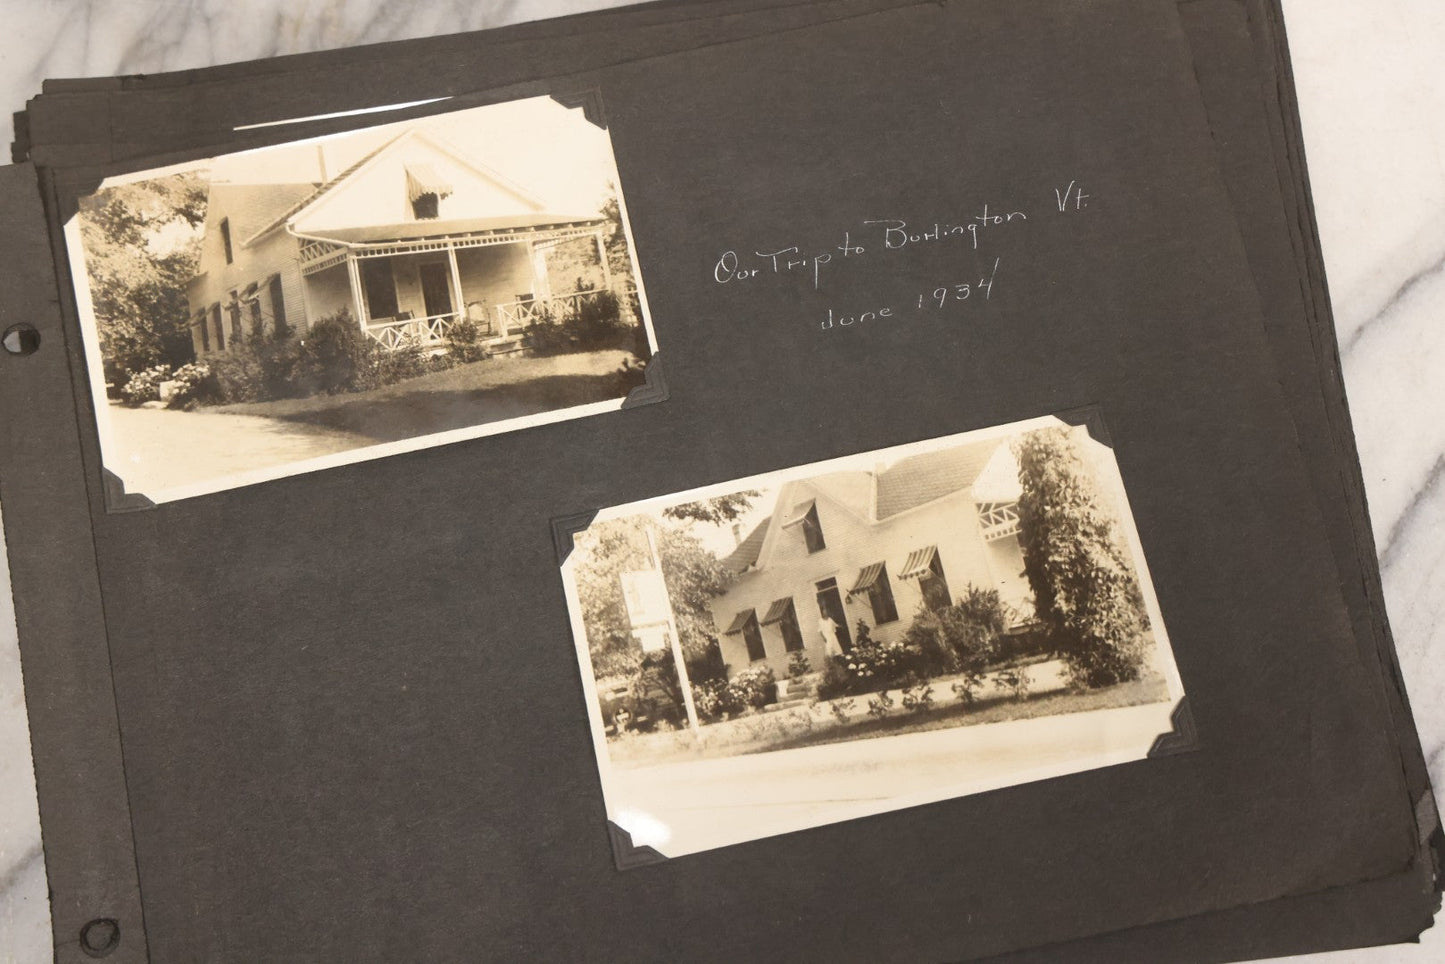 Our Trip to Burlington Vt.
June 1934